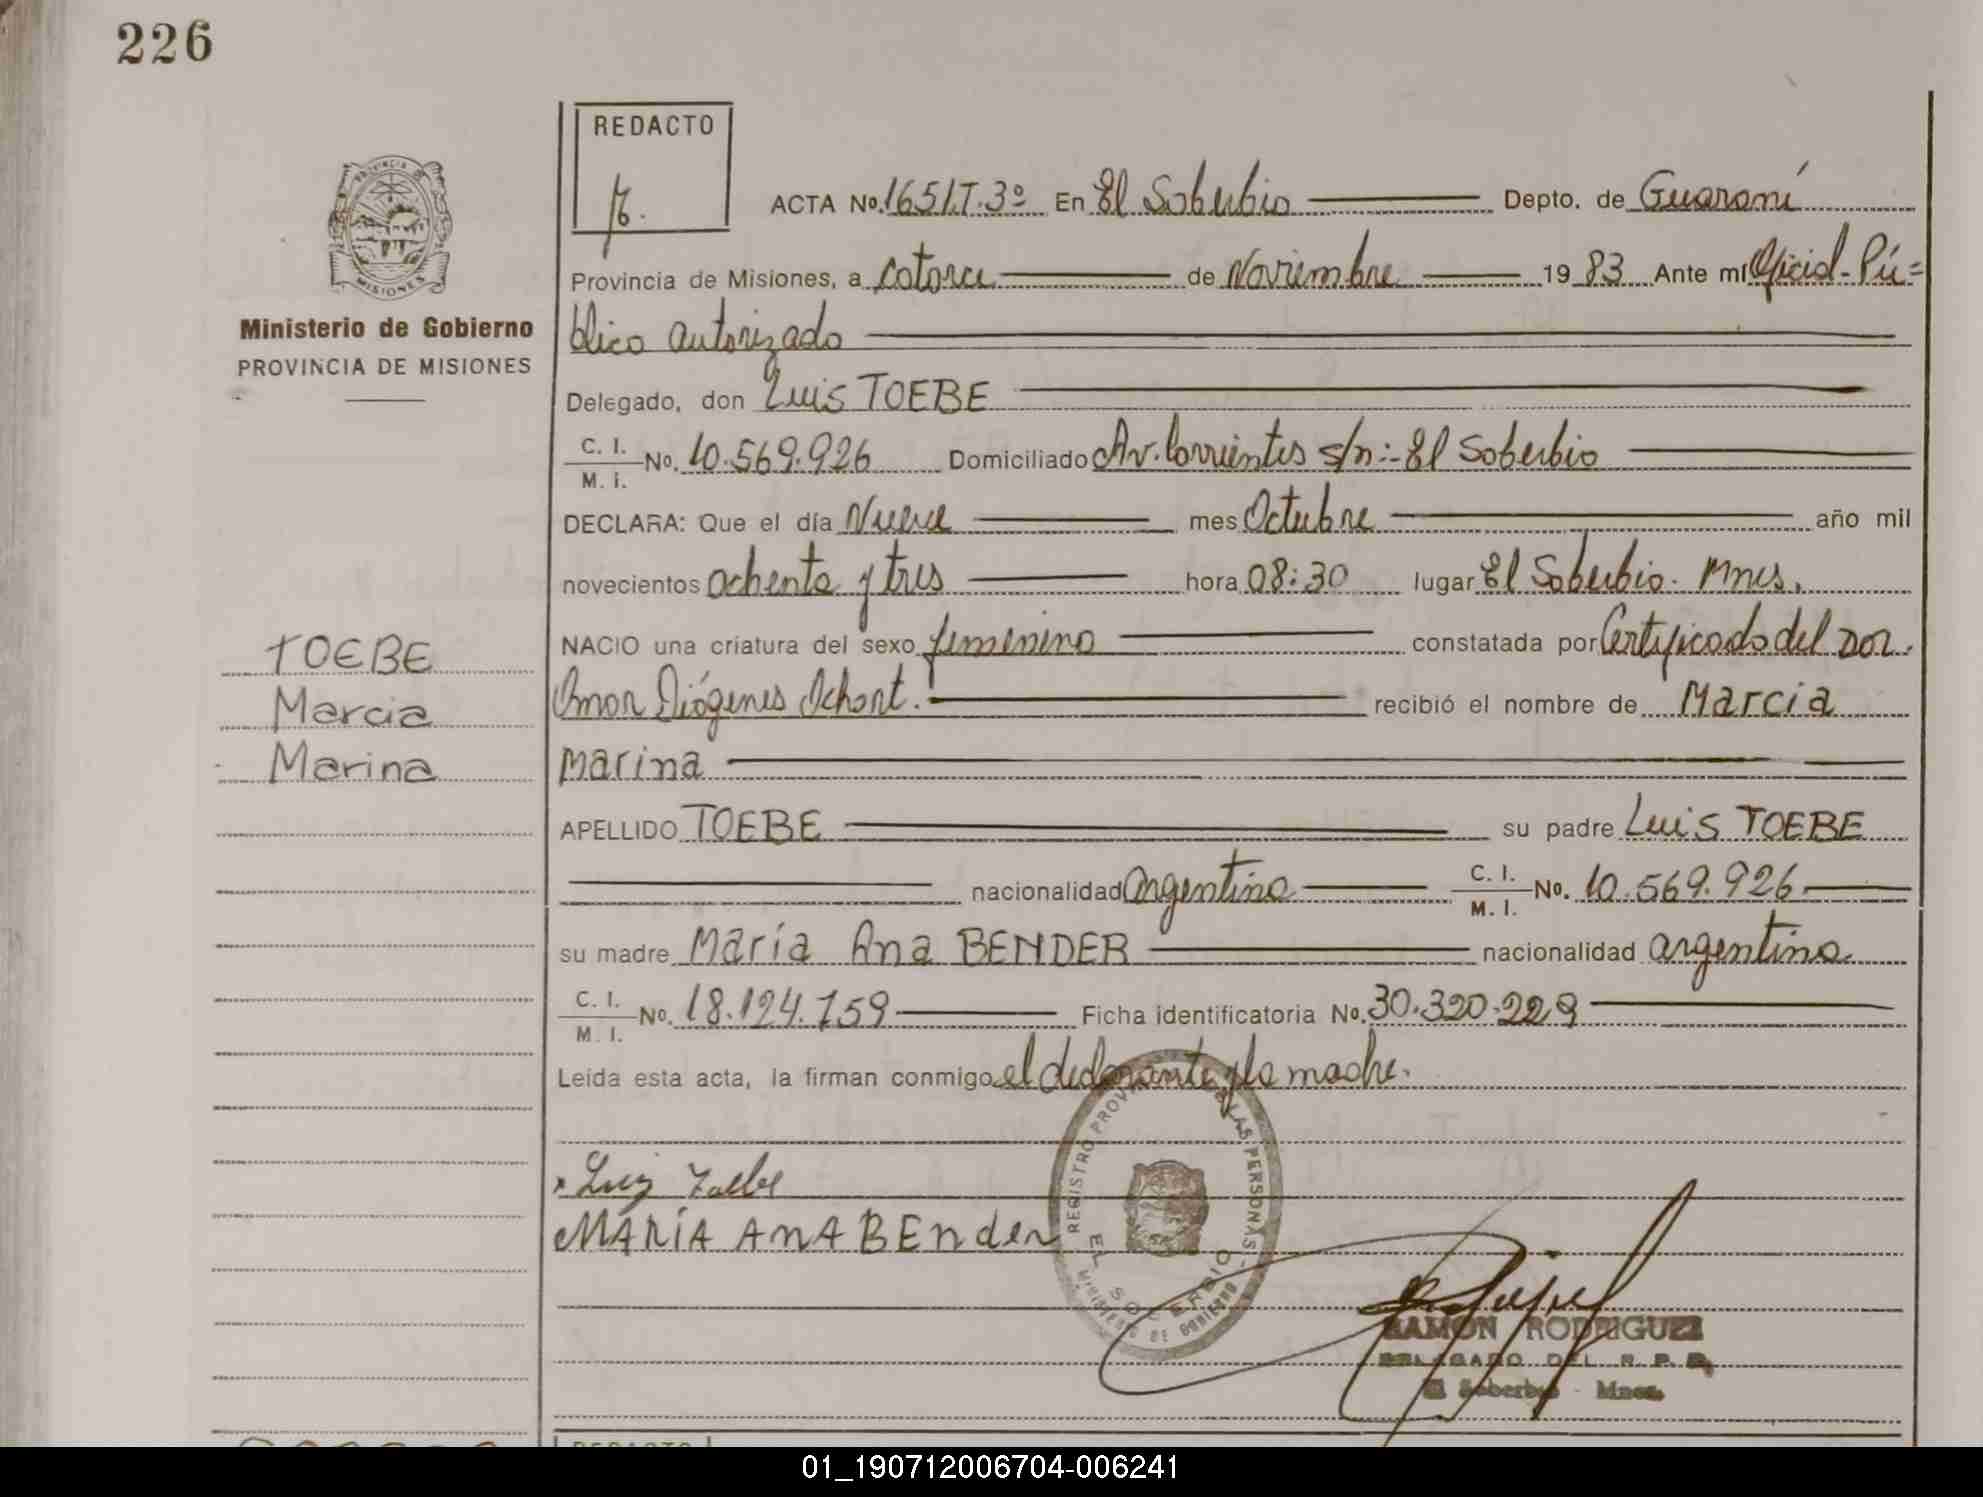 226
REDACTO
ACTA No. 1651.T.3º En El Soberbio Depto. de Guaraní
Provincia de Misiones, a catorce de Noviembre 1983 Ante mí Oficial Pú=
blico autorizado
Ministerio de Gobierno
PROVINCIA DE MISIONES
PROVINCIA DE
MISIONES
Delegado, don Luis TOEBE
C. I.
M. I. No. 10.569.926 Domiciliado Av. Corrientes s/n:-El Soberbio
DECLARA: Que el día Nueve mes Octubre año mil
novecientos ochenta y tres hora 08:30 lugar El Soberbio. Mnes.
NACIO una criatura del sexo femenino constatada por Certificado del Dor.
Omar Diógenes recibió el nombre de Marcia
Marina
TOEBE
Marcia
Marina
APELLIDO TOEBE su padre Luis TOEBE
nacionalidad argentina C. I.
M. I. No. 10.569.926
su madre María Ana BENDER nacionalidad argentina
C. I.
M. I. No. 18.124.759 Ficha identificatoria No. 30.320.229
Leída esta acta, la firman conmigo el declarante y la madre.
Luiz Toebe
MARÍA ANA BENder
REGISTRO PROV LAS PERSONAS
EL SOBERBIO
MINISTERIO DE GOBIERNO
RAMON RODRIGUEZ
DELEGADO DEL R. P. P.
El Soberbio - Mnes.
REDACTO
01_190712006704-006241